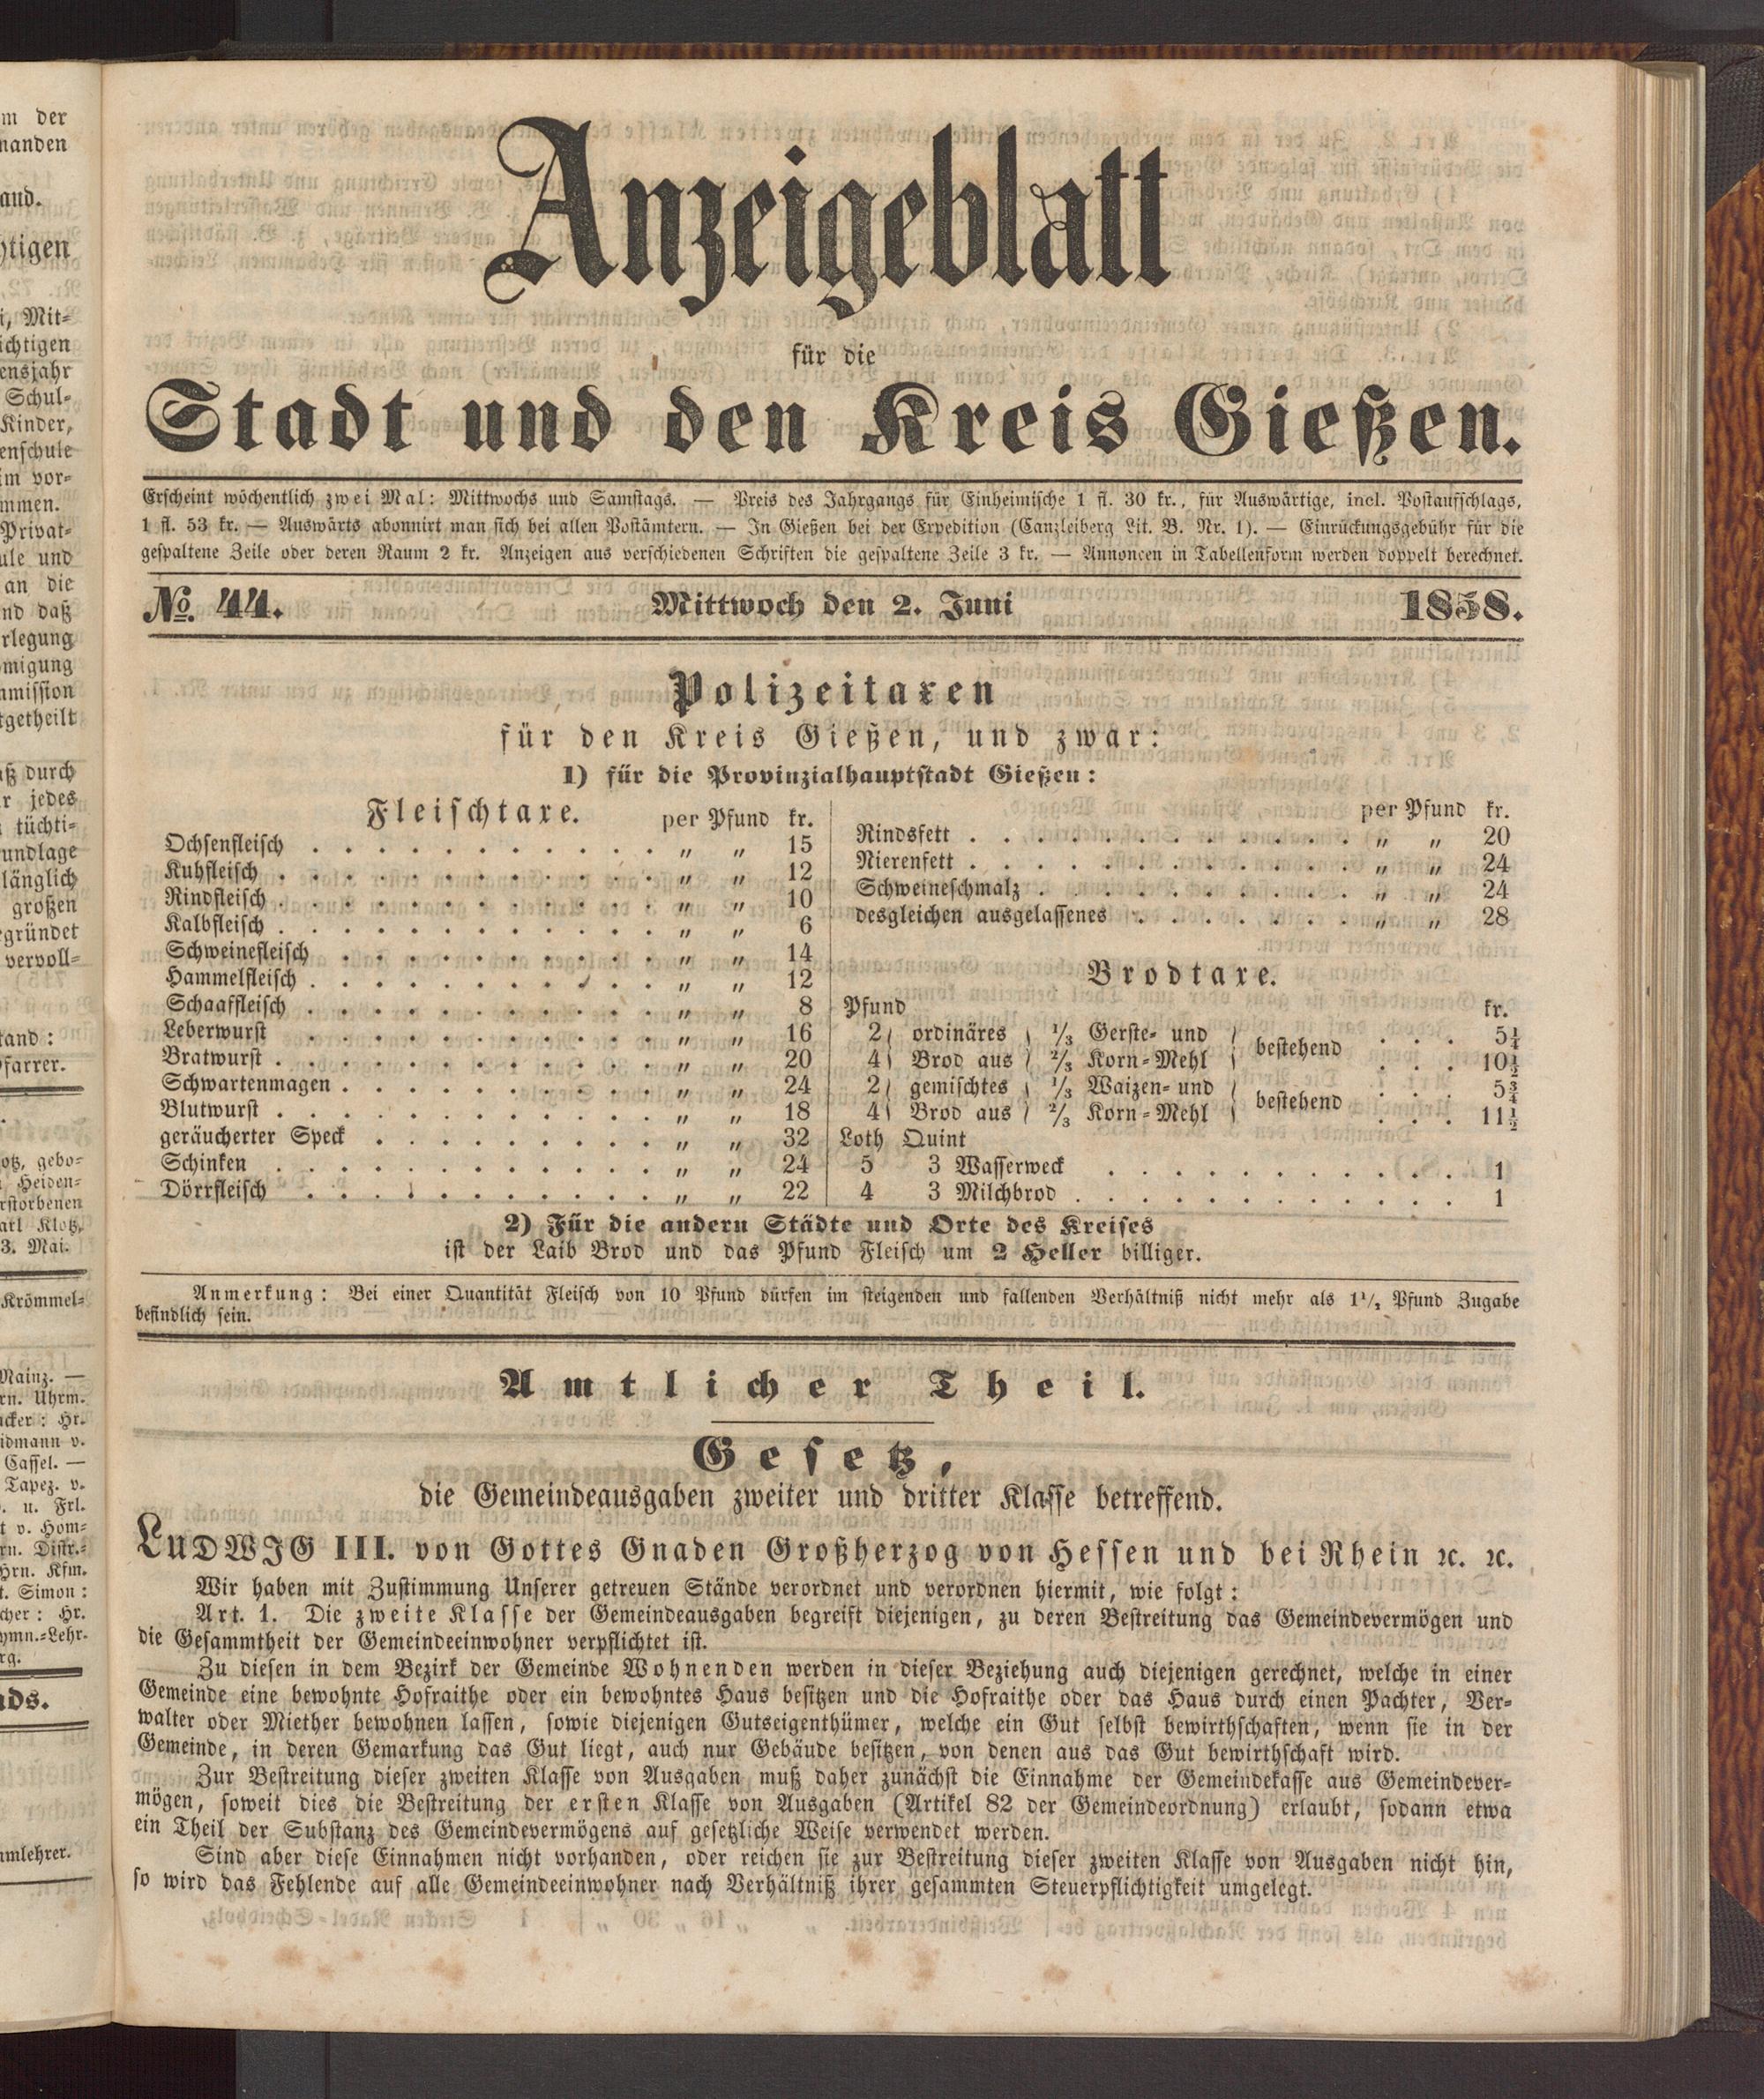 m der
nanden
and.
htigen
i, Mit-
ichtigen
ensjahr
Schul-
Kinder,
enschule
im vor-
mmen.
Privat-
ule und
an die
nd daß
rlegung
migung
mmission
tgetheilt
aß durch
r jedes
tüchti-
undlage
länglich
großen
egründet
vervoll-
tand:
farrer.
otz, gebo-
Heiden-
rstorbenen
arl Klotz,
3. Mai.
Krömmel-
Mainz. —
rn. Uhrm.
cker: Hr.
idmann v.
Cassel. —
Tapez. v.
. u. Frl.
t v. Hom-
rn. Distr.-
Hrn. Kfm.
t. Simon:
cher: Hr.
ymn.-Lehr.
rg.
nds.
mlehrer.
Anzeigeblatt
für die
Stadt und den Kreis Gießen.
Erscheint wöchentlich zwei Mal: Mittwochs und Samstags. — Preis des Jahrgangs für Einheimische 1 fl. 30 kr., für Auswärtige, incl. Postaufschlags,
1 fl. 53 kr. — Auswärts abonnirt man sich bei allen Postämtern. — In Gießen bei der Expedition (Canzleiberg Lit. B. Nr. 1). — Einrückungsgebühr für die
gespaltene Zeile oder deren Raum 2 kr. Anzeigen aus verschiedenen Schriften die gespaltene Zeile 3 kr. — Annoncen in Tabellenform werden doppelt berechnet.
No. 44. Mittwoch den 2. Juni 1858.
Polizeitaxen
für den Kreis Gießen, und zwar:
1) für die Provinzialhauptstadt Gießen:
Fleischtaxe. per Pfund kr.
Ochsenfleisch . . . . . . . . . . . . „ „ 15
Kuhfleisch . . . . . . . . . . . . „ „ 12
Rindfleisch . . . . . . . . . . . . „ „ 10
Kalbfleisch . . . . . . . . . . . . „ „ 6
Schweinefleisch . . . . . . . . . . . „ „ 14
Hammelfleisch . . . . . . . . . . . „ „ 12
Schaaffleisch . . . . . . . . . . . „ „ 8
Leberwurst . . . . . . . . . . . „ „ 16
Bratwurst . . . . . . . . . . . . „ „ 20
Schwartenmagen . . . . . . . . . . „ „ 24
Blutwurst . . . . . . . . . . . . „ „ 18
geräucherter Speck . . . . . . . . . „ „ 32
Schinken . . . . . . . . . . . . „ „ 24
Dörrfleisch . . . . . . . . . . . „ „ 22
per Pfund kr.
Rindsfett . . . . . . . . . . . . „ „ 20
Nierenfett . . . . . . . . . . . . „ „ 24
Schweineschmalz . . . . . . . . . . „ „ 24
desgleichen ausgelassenes . . . . . . . „ „ 28
Brodtaxe.
Pfund kr.
2 ordinäres 1/3 Gerste- und bestehend . . . 5¼
4 Brod aus 2/3 Korn-Mehl . . . 10½
2 gemischtes 1/3 Waizen- und bestehend . . . 5¾
4 Brod aus 2/3 Korn-Mehl . . . 11½
Loth Quint
5 3 Wasserweck . . . . . . . . . . . 1
4 3 Milchbrod . . . . . . . . . . . . 1
2) Für die andern Städte und Orte des Kreises
ist der Laib Brod und das Pfund Fleisch um 2 Heller billiger.
Anmerkung: Bei einer Quantität Fleisch von 10 Pfund dürfen im steigenden und fallenden Verhältniß nicht mehr als 1½ Pfund Zugabe
befindlich sein.
Amtlicher Theil.
Gesetz,
die Gemeindeausgaben zweiter und dritter Klasse betreffend.
LUDWIG III. von Gottes Gnaden Großherzog von Hessen und bei Rhein ꝛc. ꝛc.
Wir haben mit Zustimmung Unserer getreuen Stände verordnet und verordnen hiermit, wie folgt:
Art. 1. Die zweite Klasse der Gemeindeausgaben begreift diejenigen, zu deren Bestreitung das Gemeindevermögen und
die Gesammtheit der Gemeindeeinwohner verpflichtet ist.
Zu diesen in dem Bezirk der Gemeinde Wohnenden werden in dieser Beziehung auch diejenigen gerechnet, welche in einer
Gemeinde eine bewohnte Hofraithe oder ein bewohntes Haus besitzen und die Hofraithe oder das Haus durch einen Pachter, Ver-
walter oder Miether bewohnen lassen, sowie diejenigen Gutseigenthümer, welche ein Gut selbst bewirthschaften, wenn sie in der
Gemeinde, in deren Gemarkung das Gut liegt, auch nur Gebäude besitzen, von denen aus das Gut bewirthschaft wird.
Zur Bestreitung dieser zweiten Klasse von Ausgaben muß daher zunächst die Einnahme der Gemeindekasse aus Gemeindever-
mögen, soweit dies die Bestreitung der ersten Klasse von Ausgaben (Artikel 82 der Gemeindeordnung) erlaubt, sodann etwa
ein Theil der Substanz des Gemeindevermögens auf gesetzliche Weise verwendet werden.
Sind aber diese Einnahmen nicht vorhanden, oder reichen sie zur Bestreitung dieser zweiten Klasse von Ausgaben nicht hin,
so wird das Fehlende auf alle Gemeindeeinwohner nach Verhältniß ihrer gesammten Steuerpflichtigkeit umgelegt.